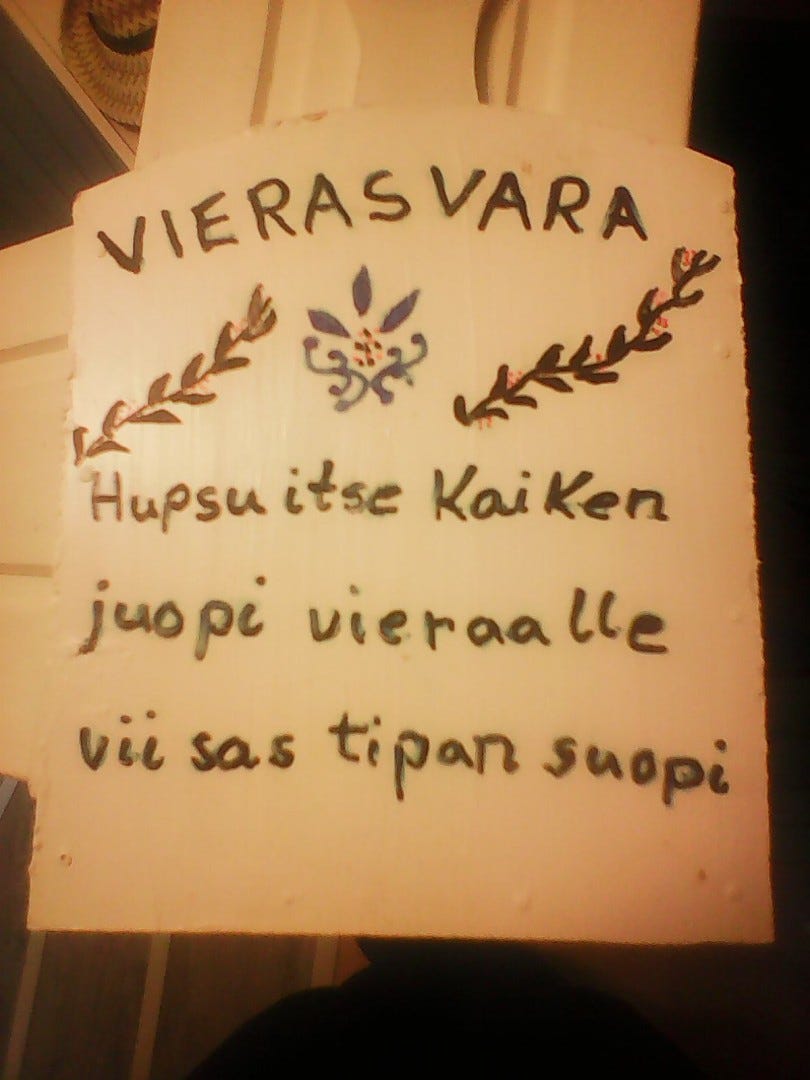 VIERASVARA
Hupsu itse Kaiken
juopi vieraalle
viisas tipan suopi